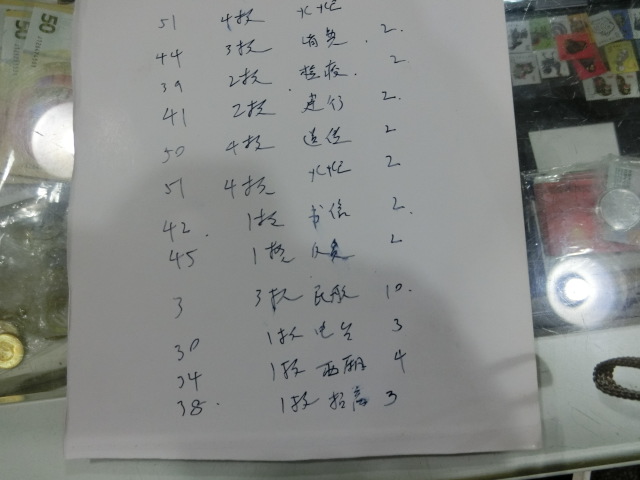 51 4枚 火炬
44 3枚 2.
39 2枚. 2.
41 2枚 建行 2.
50 4枚 遗传 2
51 4枚 火炬 2
42. 1枚 书信 2.
45 1枚 2
3 3枚 民航 10.
30 1枚 电台 3
34 1枚 西厢 4
38. 1枚 招商 3
50
50